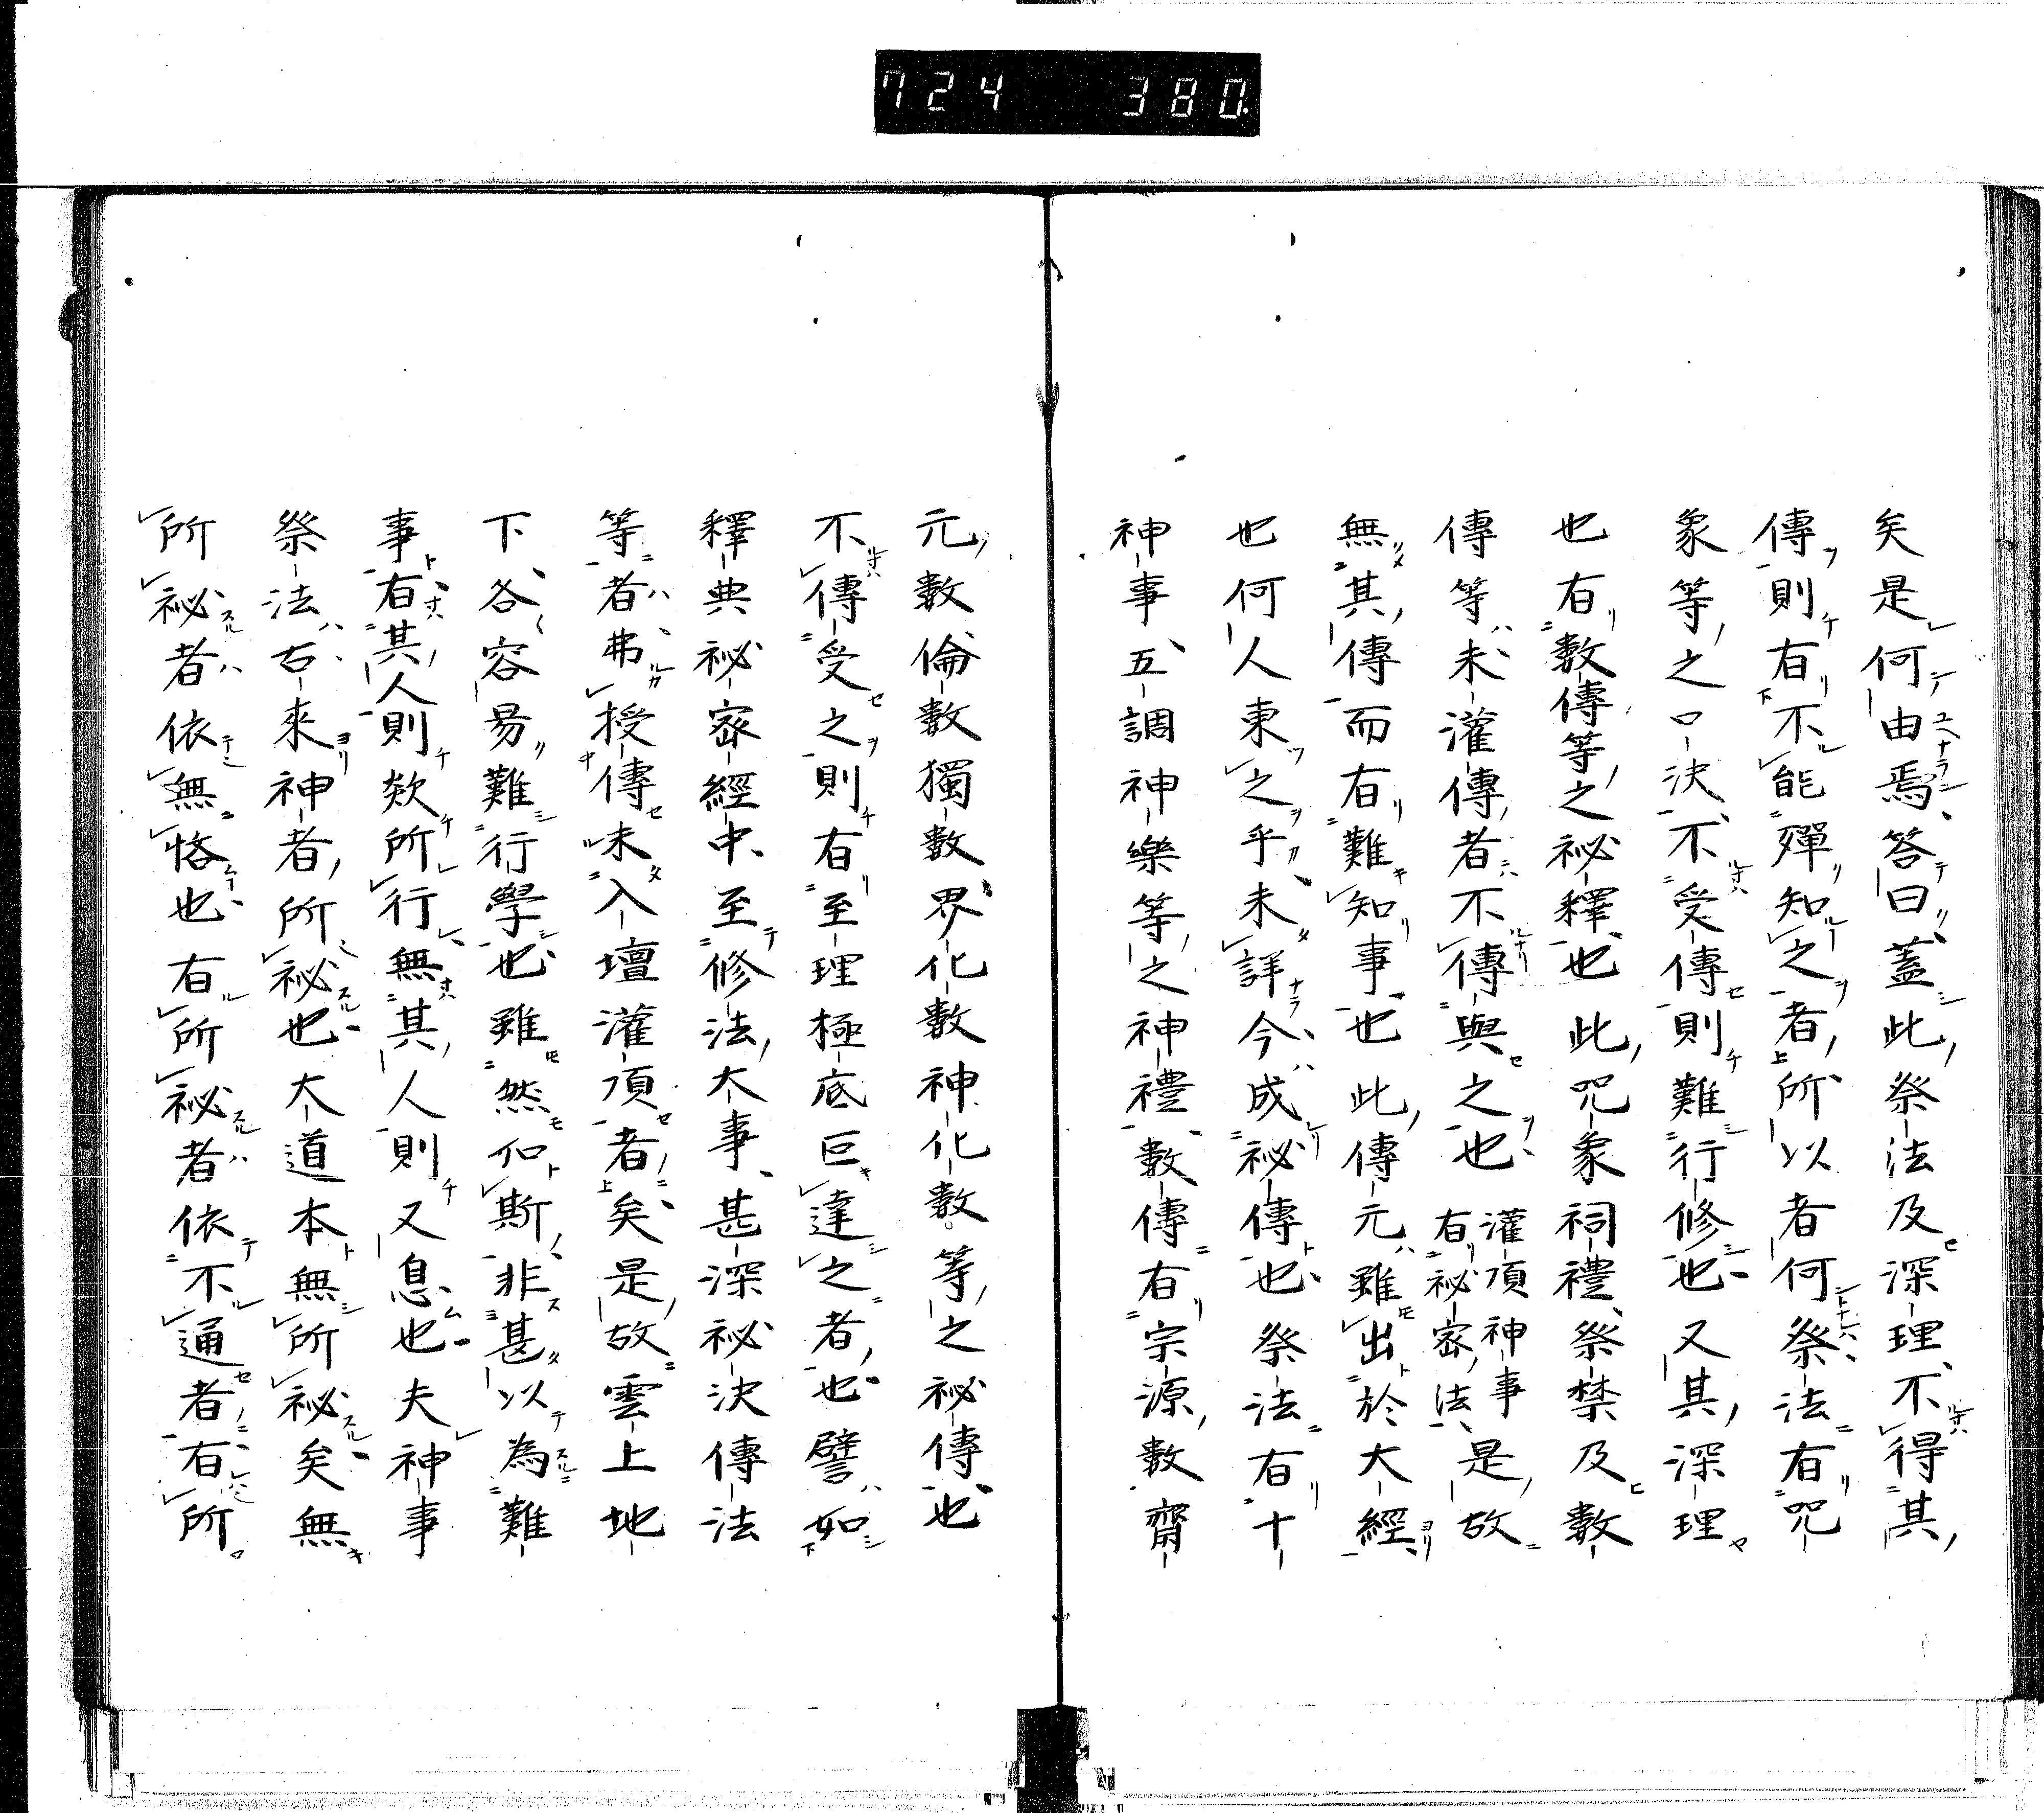 724 380
矣是何由焉答曰蓋此祭法及深理不得其
傳則有不能殫知之者所以者何祭法有咒
象等之口決不受傳則難行修也又其深理
也有數傳等之祕釋也此咒象祠禮祭禁及數
傳等未灌傳者不傳與之也灌頂神事有祕密法是故
無其傳而有難知事也此傳元雖出於大經
也何人東之乎未詳今成祕傳也祭法有十
神事五調神樂等之神禮數傳有宗源數齋
元數倫數獨數界化數神化數等之祕傳也
不傳受之則有至理極底叵達之者也譬如
釋典祕密經中至修法大事甚深祕決傳法
等者弗授傳未入壇灌頂者矣是故雲上地
下各容易難行學也雖然如斯非甚以為難
事有其人則欻所行無其人則又息也夫神事
祭法古來神者所祕也大道本無所祕矣無
所祕者依無悋也有所祕者依不通者有所